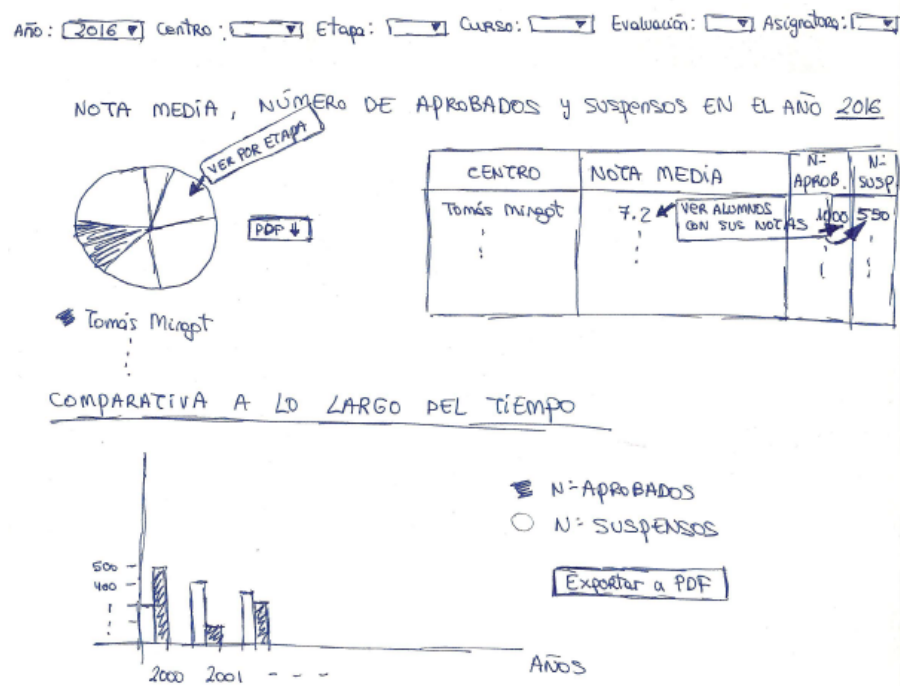 Año: 2016 Centro: Etapa: Curso: Evaluación: Asignatura:
NOTA MEDIA, NÚMERO DE APROBADOS y SUSPENSOS EN EL AÑO 2016
VER POR ETAPA
PDF
CENTRO NOTA MEDIA Nº APROB. Nº SUSP.
Tomás Mingot 7.2 VER ALUMNOS CON SUS NOTAS 1000 550
Tomás Mingot
COMPARATIVA A LO LARGO DEL TIEMPO
Nº APROBADOS
Nº SUSPENSOS
Exportar a PDF
500
400
2000 2001 - - -
AÑOS